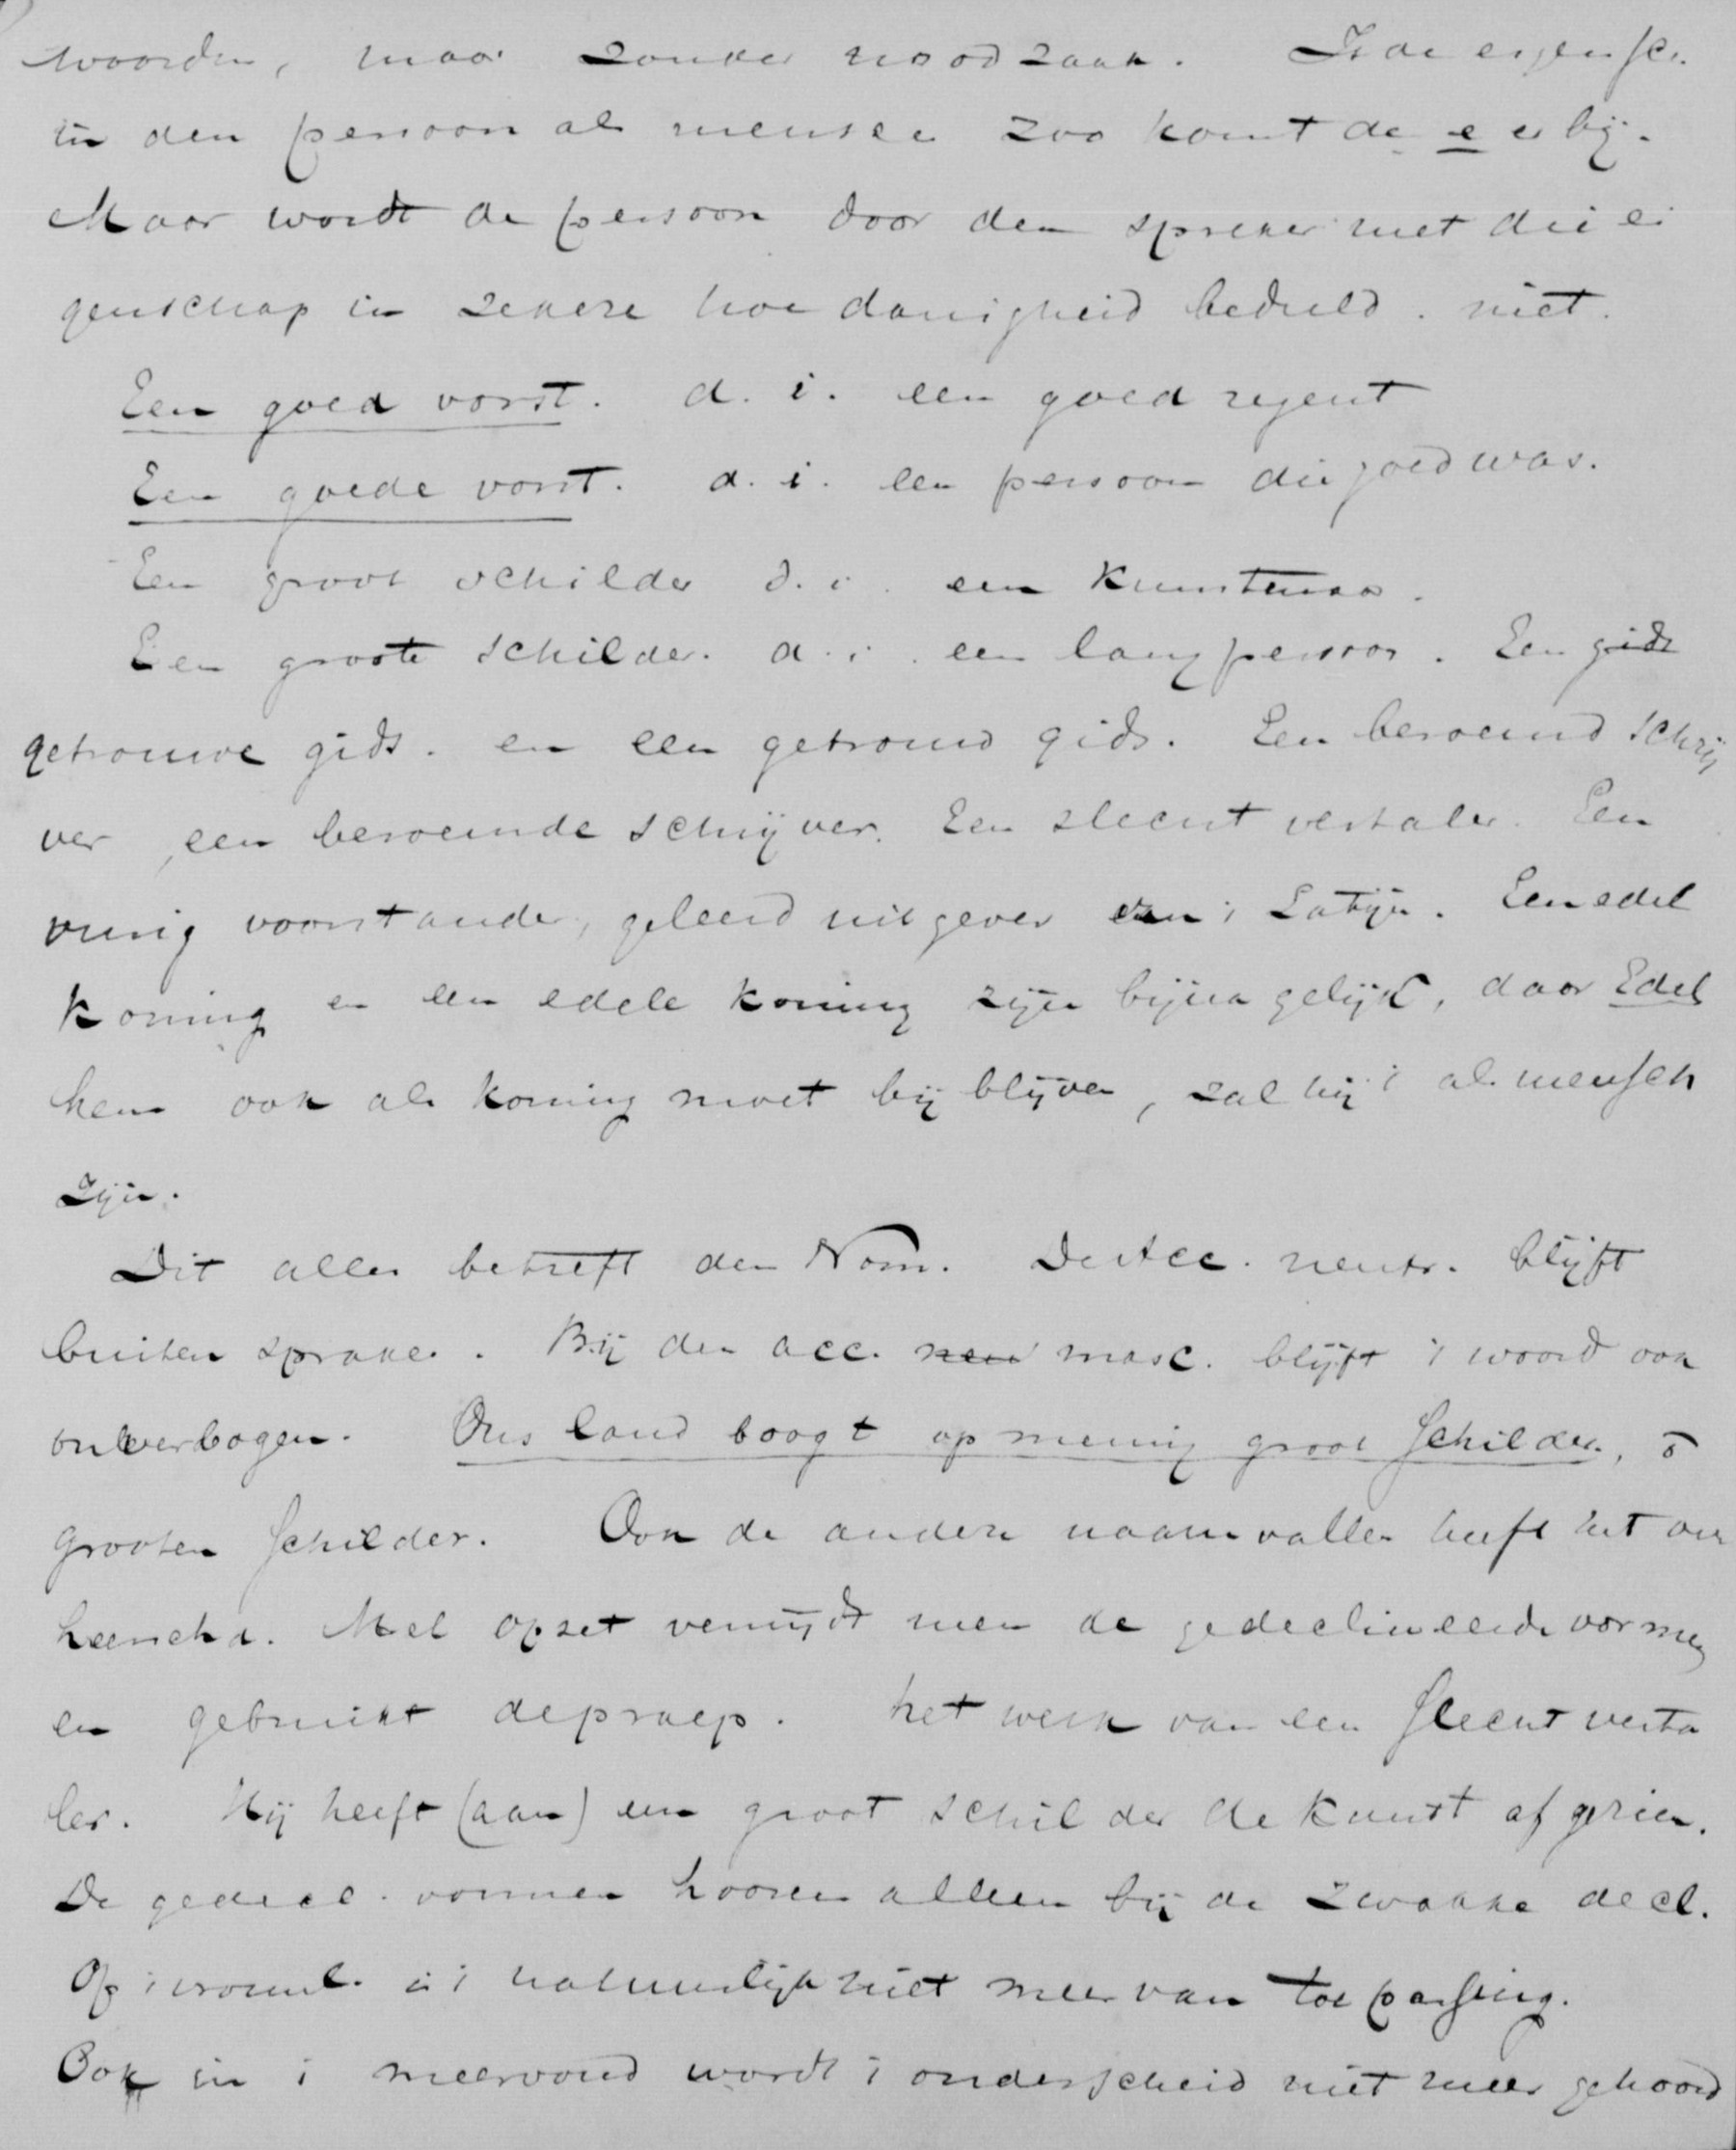 woorden, maar zonder noodzaak. Is de eigensch.
in den persoon als mensch zoo komt de e er bij.
Maar wordt de persoon door den spreker met die ei
genschap in zekere hoedanigheid bedoeld. niet.
Een goed vorst. d. i. een goed regent
Een goede vorst. d. i. een persoon die goed was.
Een groot schilder d. i. een kunstenaar.
Een groote schilder. d. i. een lang persoon. Een gids
getrouwe gids. en een getrouw gids. Een beroemd schrij
ver, een beroemde schrijver. Een slecht vertaler. Een
vurig voorstander, geleerd uitgever van i Latijn. Een edel
koning en een edele koning zijn bijna gelijk, daar Edel
hem ook als koning moet bij blijven, zal hij i als mensch
zijn.
Dit alles betreft den Nom. De Acc. neutr. blijft
buiten sprake. Bij den acc. neu masc. blijft i woord ook
onverbogen. Ons land boogt op menig groot schilder, ō
grooten schilder. Ook de andere naamvallen heeft het
Met opzet vermijdt men de gedeclineerde vormen
en gebruikt de praep. het werk van een slecht verta
ler. Hij heeft (aan) een groot schilder de kunst afgezien.
De gedecl. vormen hooren alleen bij de zwakke decl.
Op i vrouwl. is i natuurlijk niet meer van toepassing.
Ook in i meervoud wordt i onderscheid niet meer gehoord